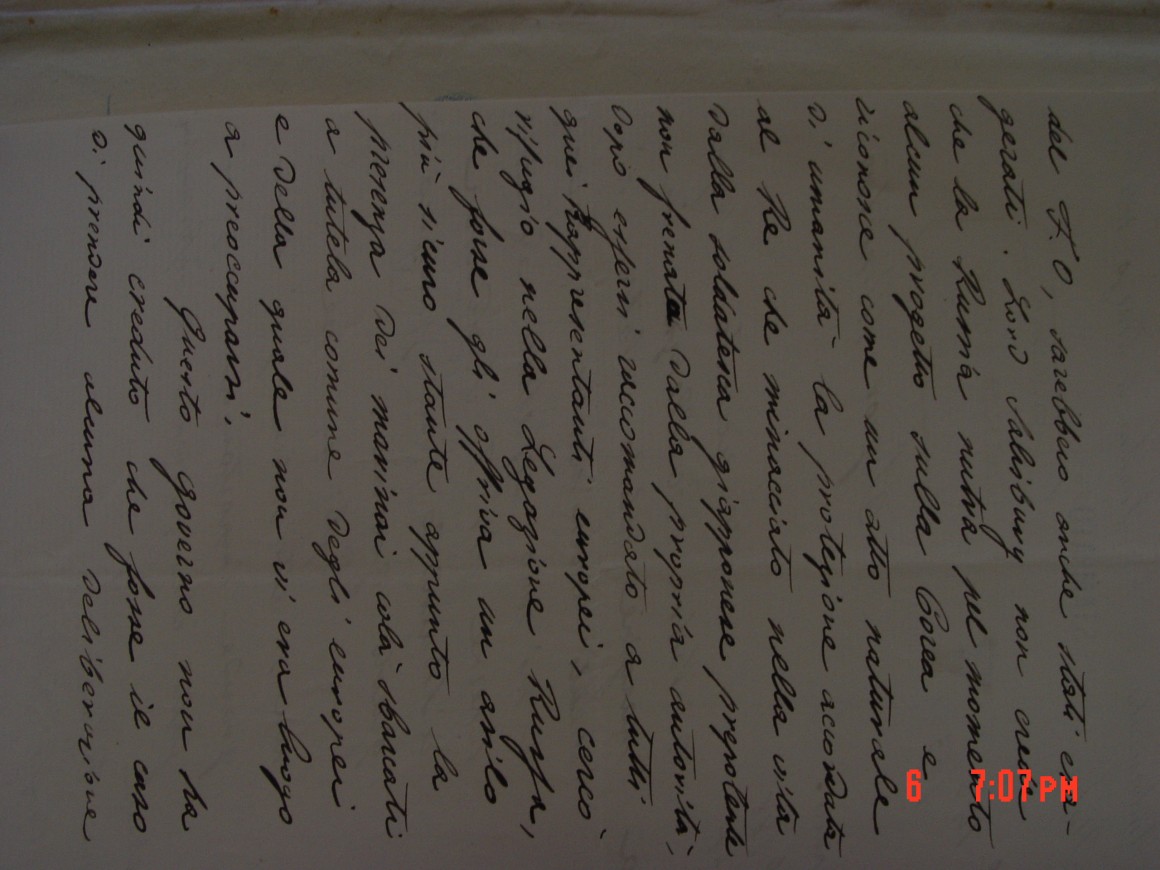 del F. O, sarebbero anche stati esa-
gerati. Lord Salisbury non crede
che la Russia nutra pel momento
alcun progetto sulla Corea e
riconosce come un atto naturale
d'umanità la protezione accordata
al Re che minacciato nella vita
dalla soldatesca giapponese prepotente
non frenata dalla propria autorità,
dopo essersi raccomandato a tutti
quei Rappresentanti europei, cercò
rifugio nella Legazione Russa,
che forse gli offriva un asilo
più sicuro stante appunto la
presenza dei marinai colà sbarcati
a tutela comune degli europei
e della quale non vi era luogo
a preoccuparsi.
Questo governo non ha
quindi creduto che fosse il caso
di prendere alcuna deliberazione
6 7:07PM